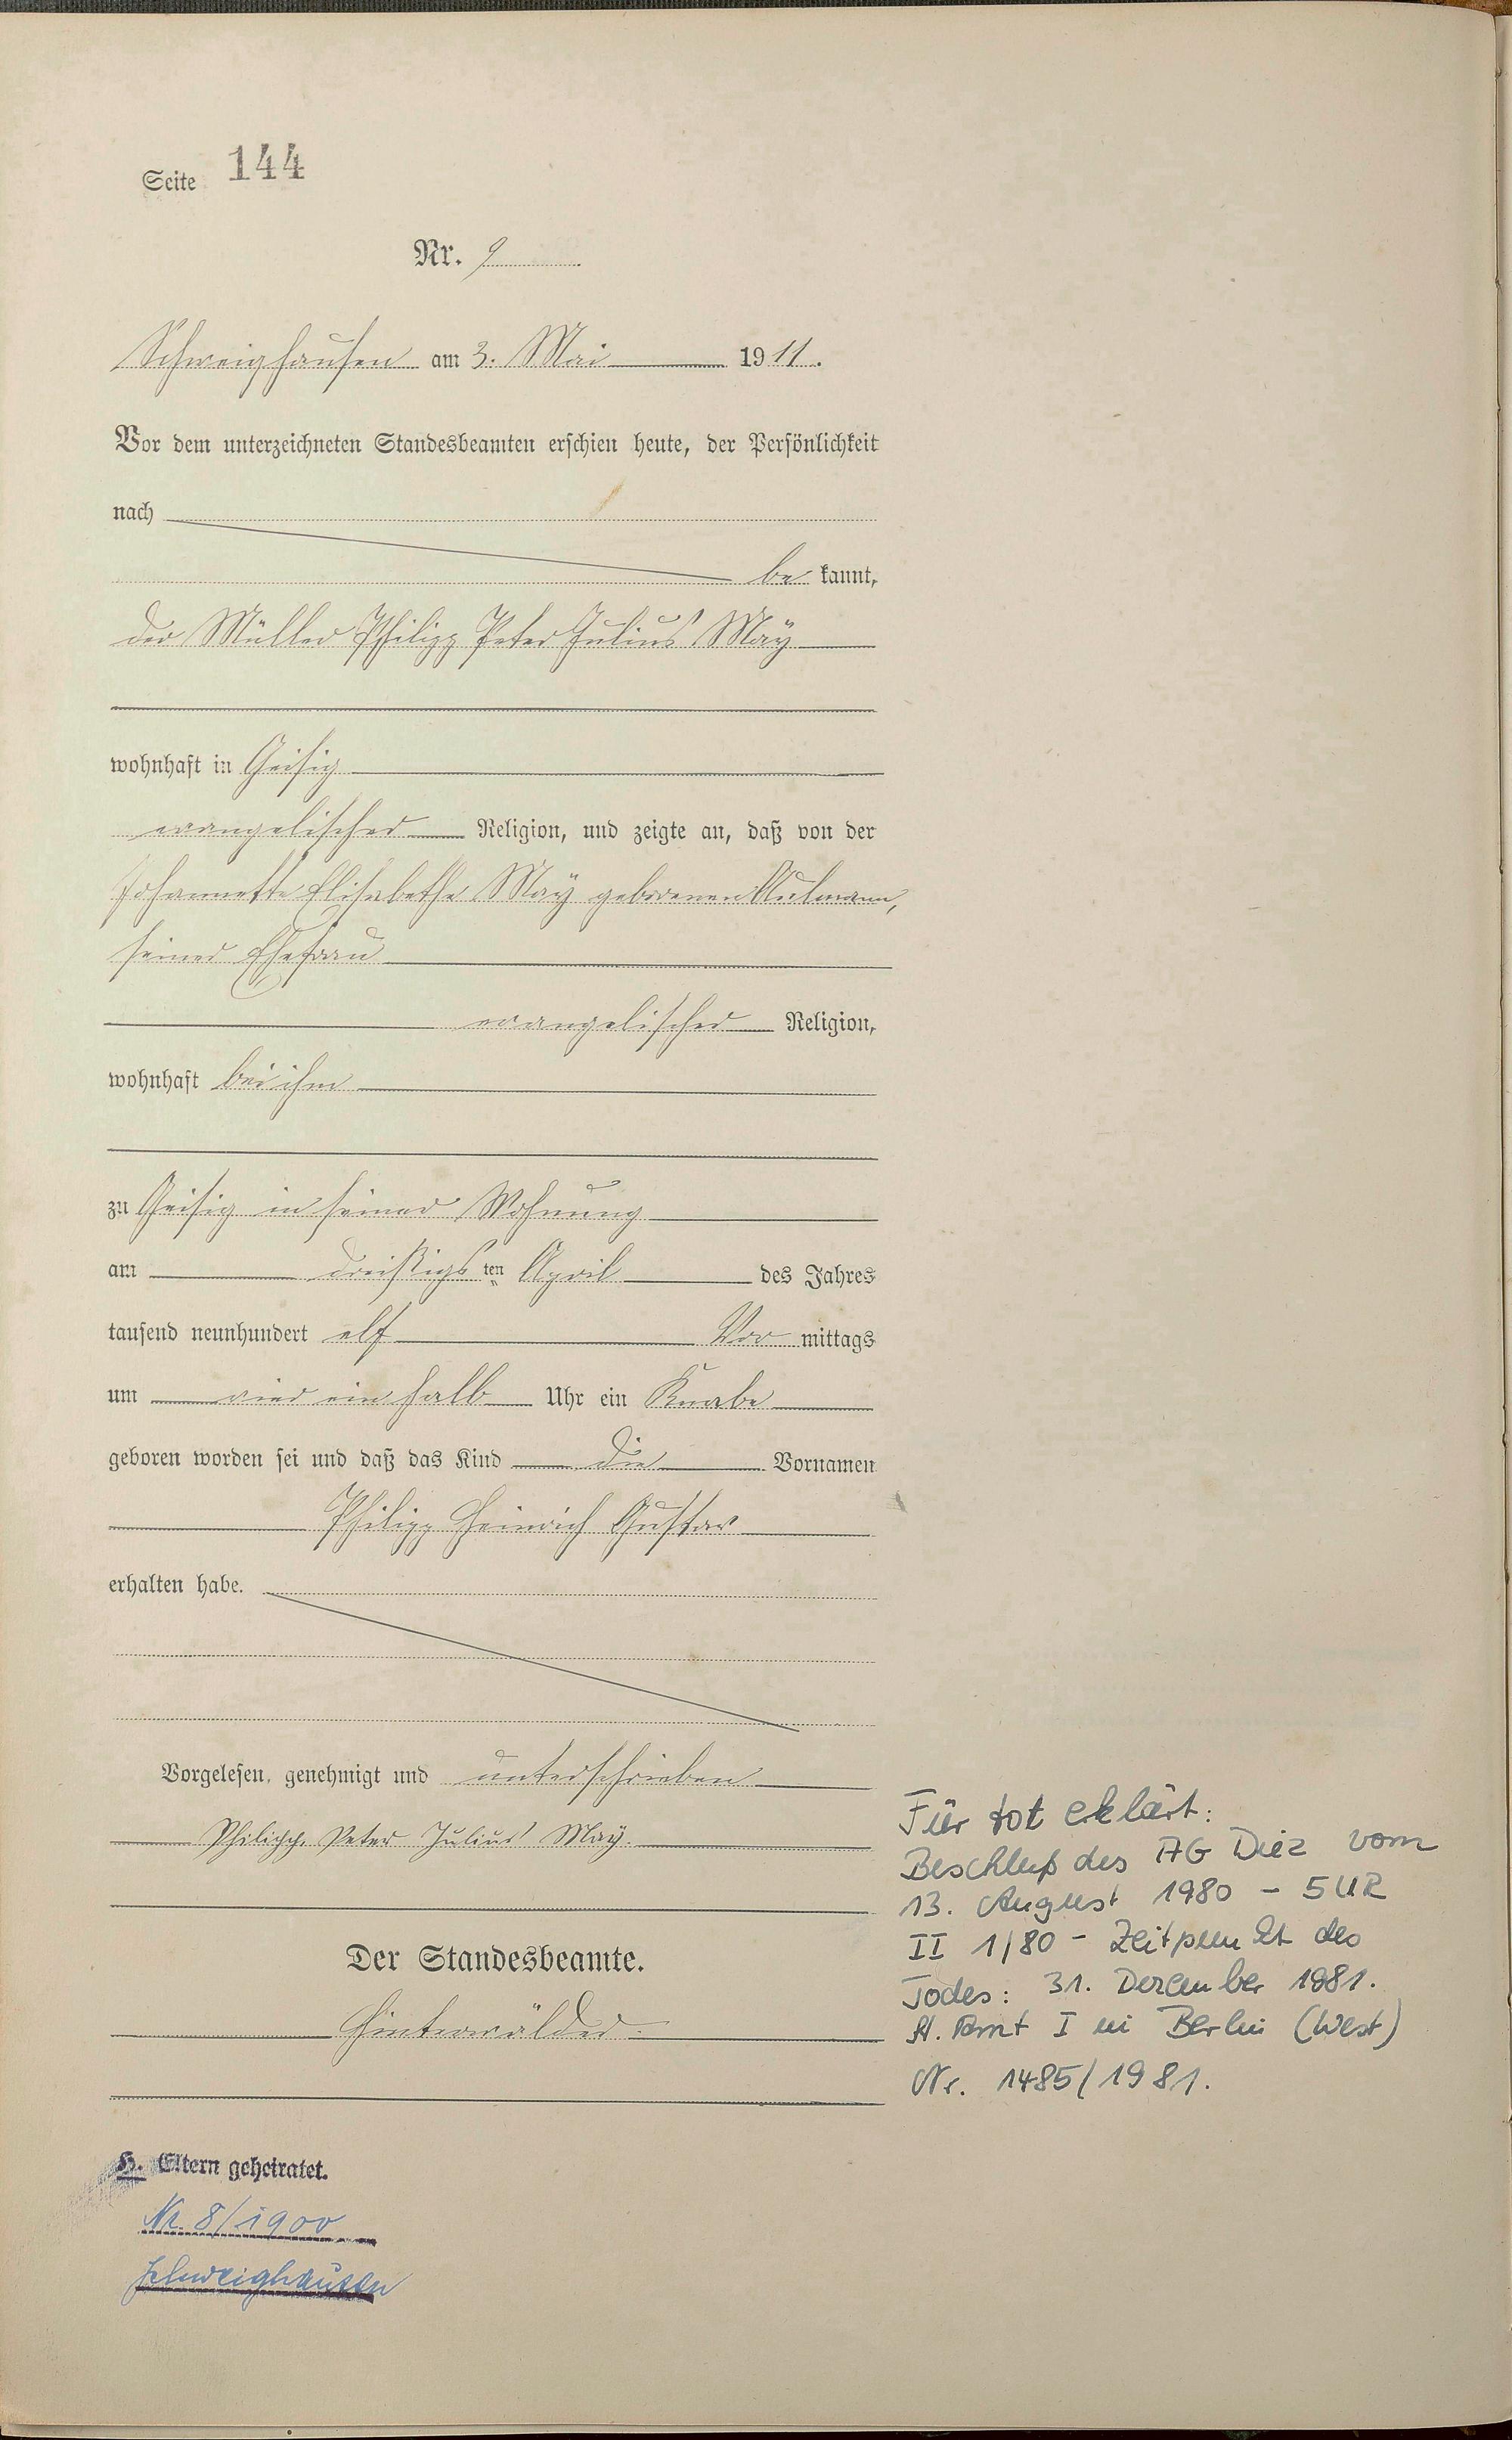 Seite 144
Nr. 9
Schweighausen am 3. Mai 1911.
Vor dem unterzeichneten Standesbeamten erschien heute, der Persönlichkeit
nach
be kannt,
der Müller Philipp Peter Julius May
wohnhaft in Geisig
evangelischer Religion, und zeigte an, daß von der
Johannette Elisabethe May geborenen Aulmann,
seiner Ehefrau
evangelischer Religion,
wohnhaft bei ihm
zu Geisig in seiner Wohnung
am dreißigs ten April des Jahres
tausend neunhundert elf Vor mittags
um vier ein halb Uhr ein Knabe
geboren worden sei und daß das Kind die Vornamen
Philipp Heinrich Gustav
erhalten habe.
Vorgelesen, genehmigt und unterschrieben
Philipp Peter Julius May.
Der Standesbeamte.
Hinterwälder.
H. Eltern geheiratet.
Nr. 8/1900
Schweighausen
Für tot erklärt:
Beschluß des AG Diez vom
13. August 1980 - 5 UR
II 1/80 - Zeitpunkt des
Todes: 31. Dezember 1981.
St. Amt I in Berlin (West)
Nr. 1485/1981.